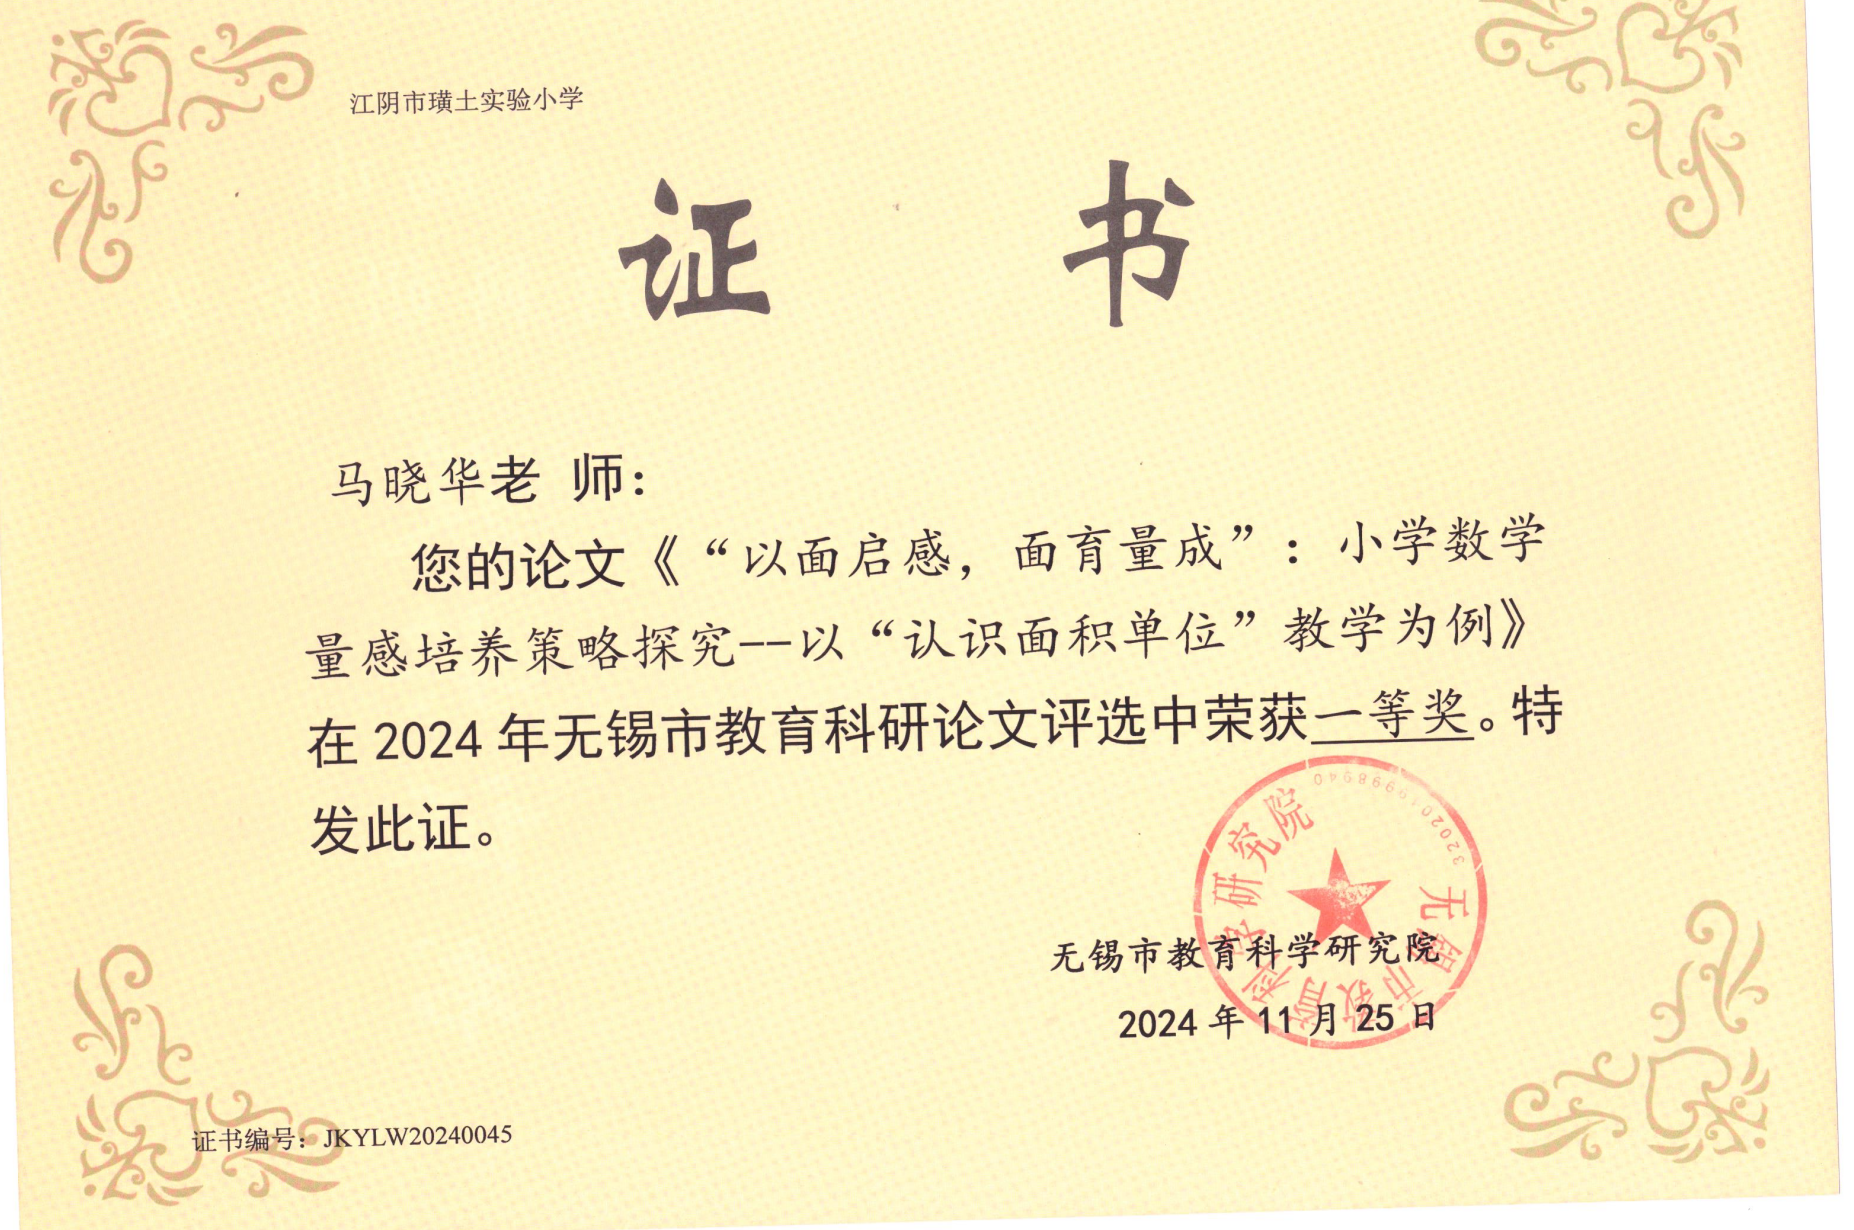 江阴市璜土实验小学
证 书
马晓华老 师：
您的论文《“以面启感，面育量成”：小学数学
量感培养策略探究--以“认识面积单位”教学为例》
在 2024 年无锡市教育科研论文评选中荣获一等奖。特
发此证。
无锡市教育科学研究院
3202019998940
无锡市教育科学研究院
2024 年 11 月 25 日
证书编号：JKYLW20240045